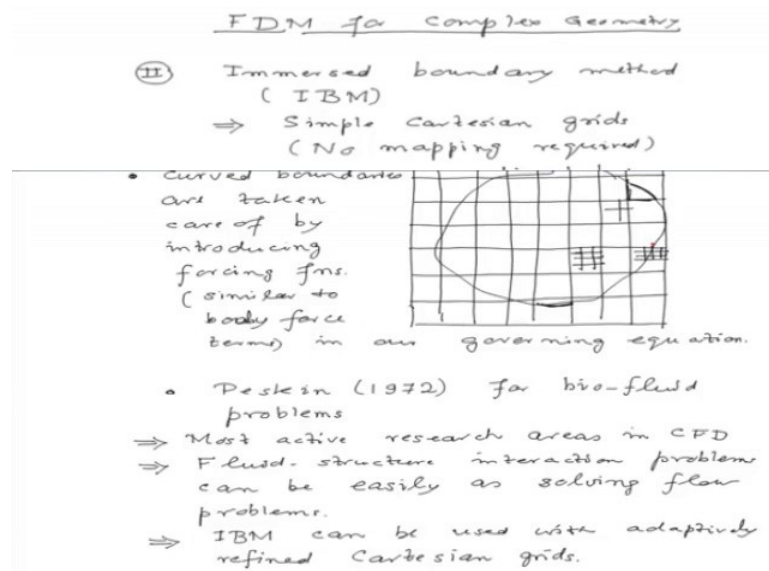 FDM for Complex Geometry
II Immersed boundary method
( IBM)
⇒ Simple Cartesian grids
( No mapping required)
• Curved boundaries
are taken
care of by
introducing
forcing fns.
( similar to
body force
terms) in our governing equation.
• Peskin (1972) for bio-fluid
problems
⇒ Most active research areas in CFD
⇒ Fluid-structure interaction problems
can be easily as solving flow
problems.
⇒ IBM can be used with adaptively
refined Cartesian grids.